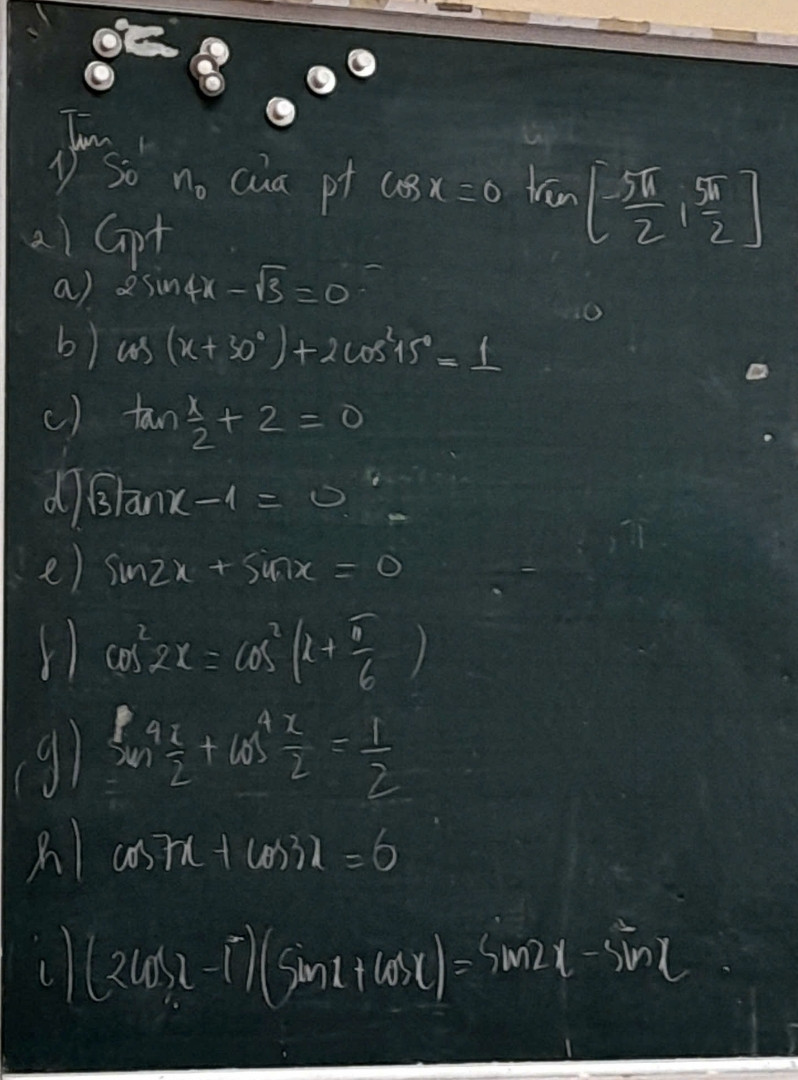 Tìm
1) Số no của pt cosx = 0 trên [-5π/2; 5π/2]
2) Gpt
a) 2sin4x - √3 = 0
b) cos(x+30°) + 2cos²15° = 1
c) tan x/2 + 2 = 0
d) √3tanx - 1 = 0
e) sin2x + sinx = 0
f) cos²2x = cos²(x + π/6)
g) sin⁴ x/2 + cos⁴ x/2 = 1/2
h) cos7x + cos3x = 0
i) (2cosx - 1)(sinx + cosx) = sin2x - sinx